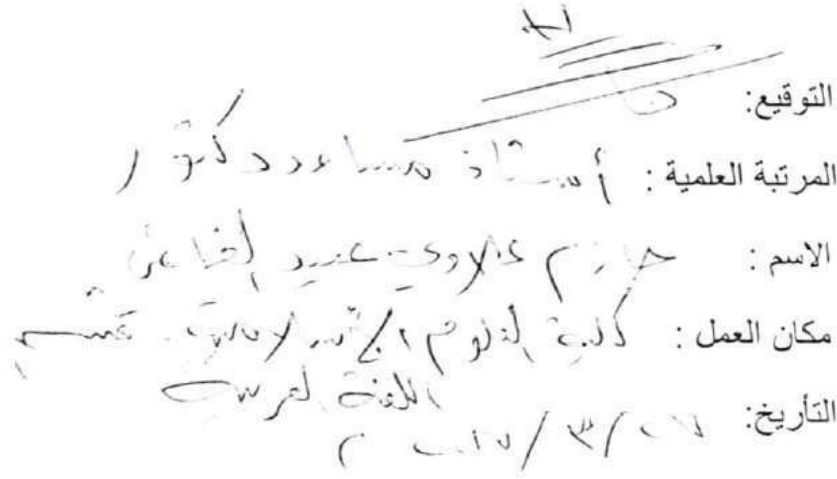 التوقيع:
المرتبة العلمية : أستاذ مساعد دكتور
الاسم : حازم علاوي عبيد الغانمي
مكان العمل : كلية العلوم الإسلامية - قسم
اللغة العربية
التأريخ: ٢٧/٣/٢٠١٧ م